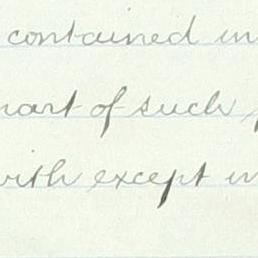 contained in
part of such
with except in